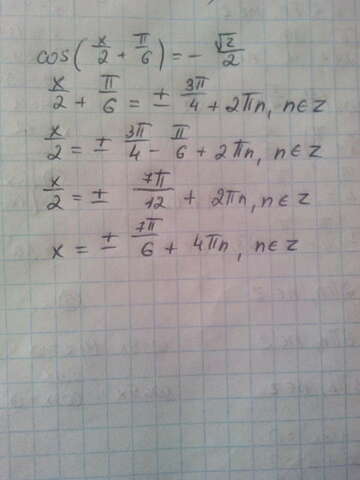 cos(x/2 + π/6) = - √2/2
x/2 + π/6 = ± 3π/4 + 2πn, n∈z
x/2 = ± 3π/4 - π/6 + 2πn, n∈z
x/2 = ± 7π/12 + 2πn, n∈z
x = ± 7π/6 + 4πn, n∈z